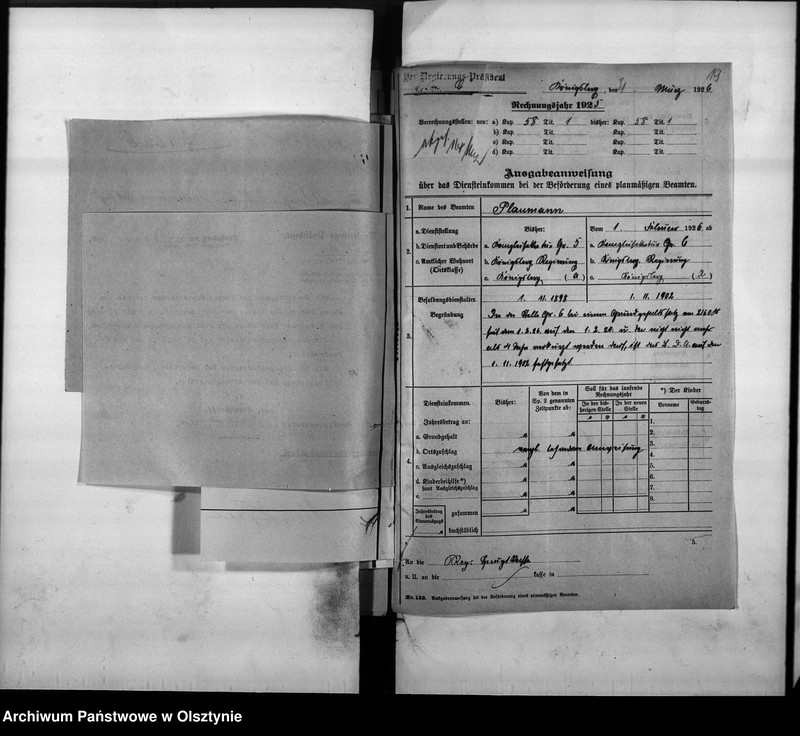 Der Regierungs-Präsident
Königsberg, den 31 März 1926. 19
Rechnungsjahr 1925
Verrechnungsstellen: neu: a) Kap. 58 Tit. 1 bisher: Kap. 58 Tit. 1
b) Kap. Tit. Kap. Tit.
c) Kap. Tit. Kap. Tit.
d) Kap. Tit. Kap. Tit.
Ausgabeanweisung
über das Diensteinkommen bei der Beförderung eines planmäßigen Beamten.
1. Name des Beamten Plaumann
2. a. Dienststellung
b. Dienstort und Behörde
c. Amtlicher Wohnort
(Ortsklasse)
Bisher:
a. Kanzleisekretär Gr. 5
b. Königsberg Regierung
c. Königsberg (a)
Vom 1. Februar 1926 ab
a. Kanzleisekretär Gr. 6
b. Königsberg Regierung
c. Königsberg
3. Besoldungsdienstalter. 1. 11. 1898 1. 11. 1902
Begründung
In der Stelle Gr. 6 bei einem Grundgehaltssatz von 2160
seit dem 1. 2. 26. auf den 1. 2. 20. u. da nicht mehr
als 4 Jahre werden darf, ist das B. D. A. auf den
1. 11. 1902 festgesetzt
4. Diensteinkommen.
Jahresbetrag an:
a. Grundgehalt
b. Ortszuschlag
c. Ausgleichszuschlag
d. Kinderbeihilfe*)
samt Ausgleichszuschlag
e.
Jahresbetrag
des
zusammen
buchstäblich
Bisher:
Von dem in
Sp. 2 genannten
Zeitpunkte ab:
Soll für das laufende
Rechnungsjahr
In der bis-
herigen Stelle
In der neuen
Stelle
*) Der Kinder
Vorname
Geburts-
tag
1.
2.
3.
4.
5.
6.
7.
8.
vergl. besondere Anweisung
5.
An die Reg. Haupt Kasse
u. U. an die kasse in
Nr. 152. Ausgabeanweisung bei der Beförderung eines planmäßigen Beamten.
Archiwum Państwowe w Olsztynie